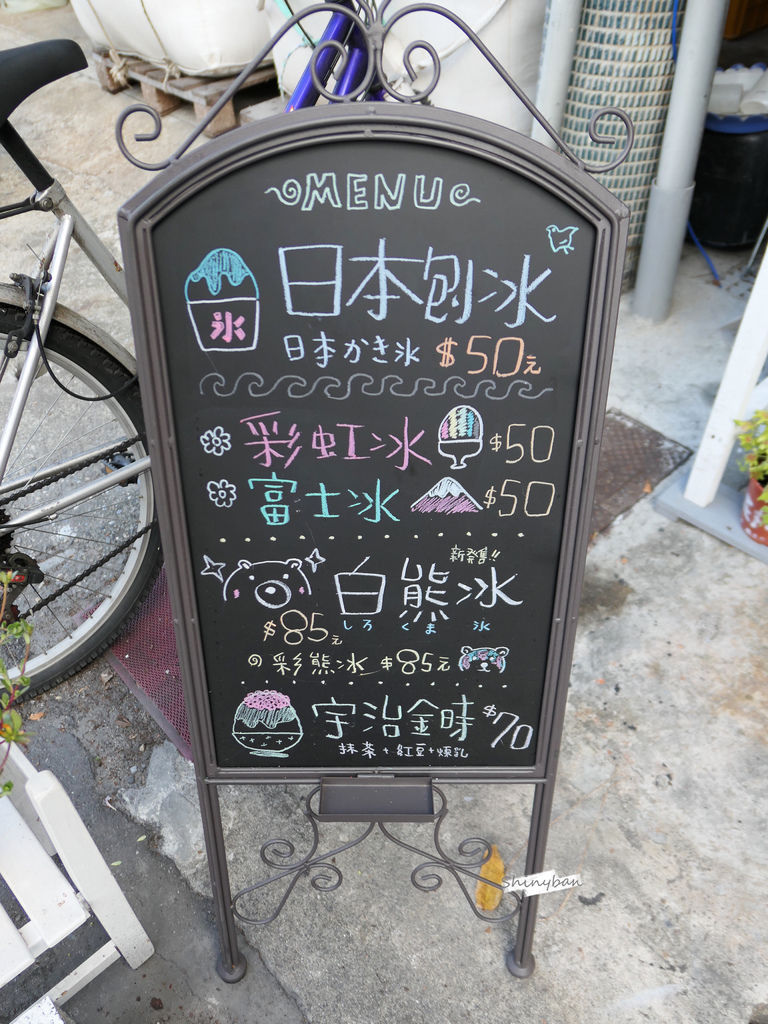 MENU
日本刨冰
氷
日本かき氷 $50元
彩虹冰 $50
富士冰 $50
新發售!!
白熊冰
しろ くま 氷
$85元
彩熊冰 $85元
宇治金時 $70
抹茶+紅豆+煉乳
Shinyban